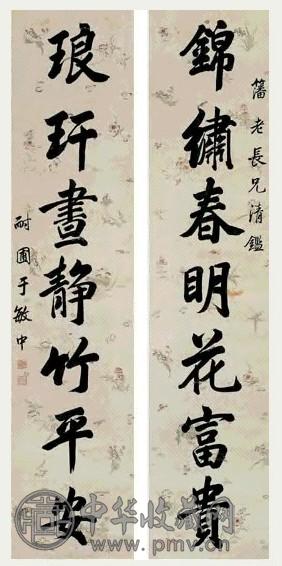 籓老長兄清鑑
錦繡春明花富貴
琅玕晝靜竹平安
耐圃于敏中
中华收藏网
www.pmv.cn